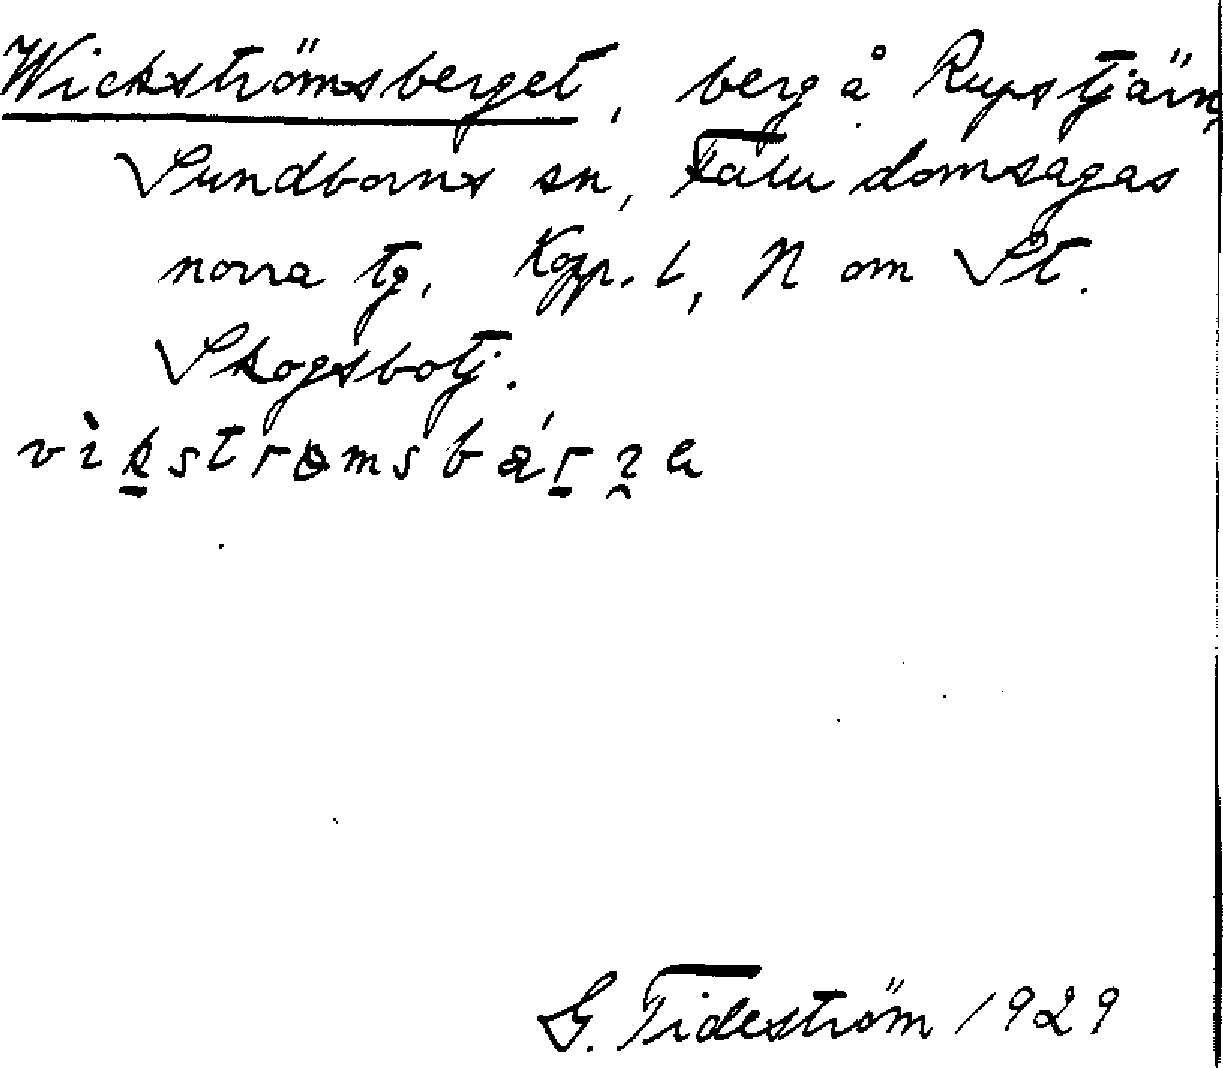 Wickströmsberget, berg å Rupstjärn,
Sundborns sn, Falu domsagas
norra tg, Kopp. l, N om St.
Skogsbotj.
G. Tideström 1929